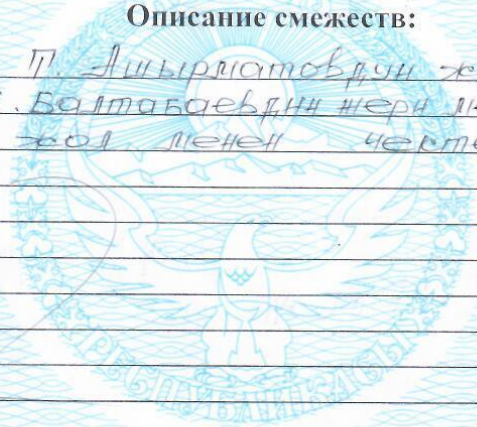 Описание смежеств:
Т. Ашырматовдун ж
. Балтабаевдин жери м
жол менен чекте
РЕСПУБЛИКАСЫ